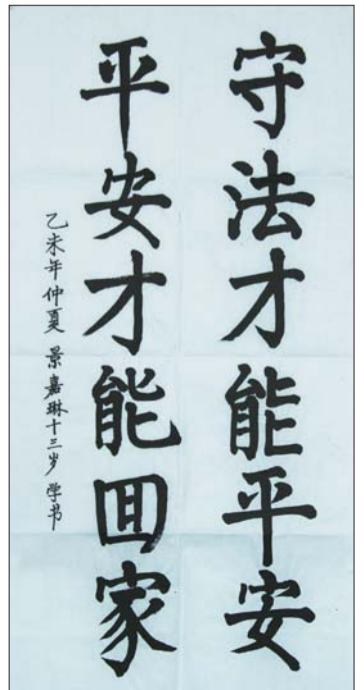 守法才能平安
平安才能回家
乙未年仲夏 景嘉琳十三岁 学书